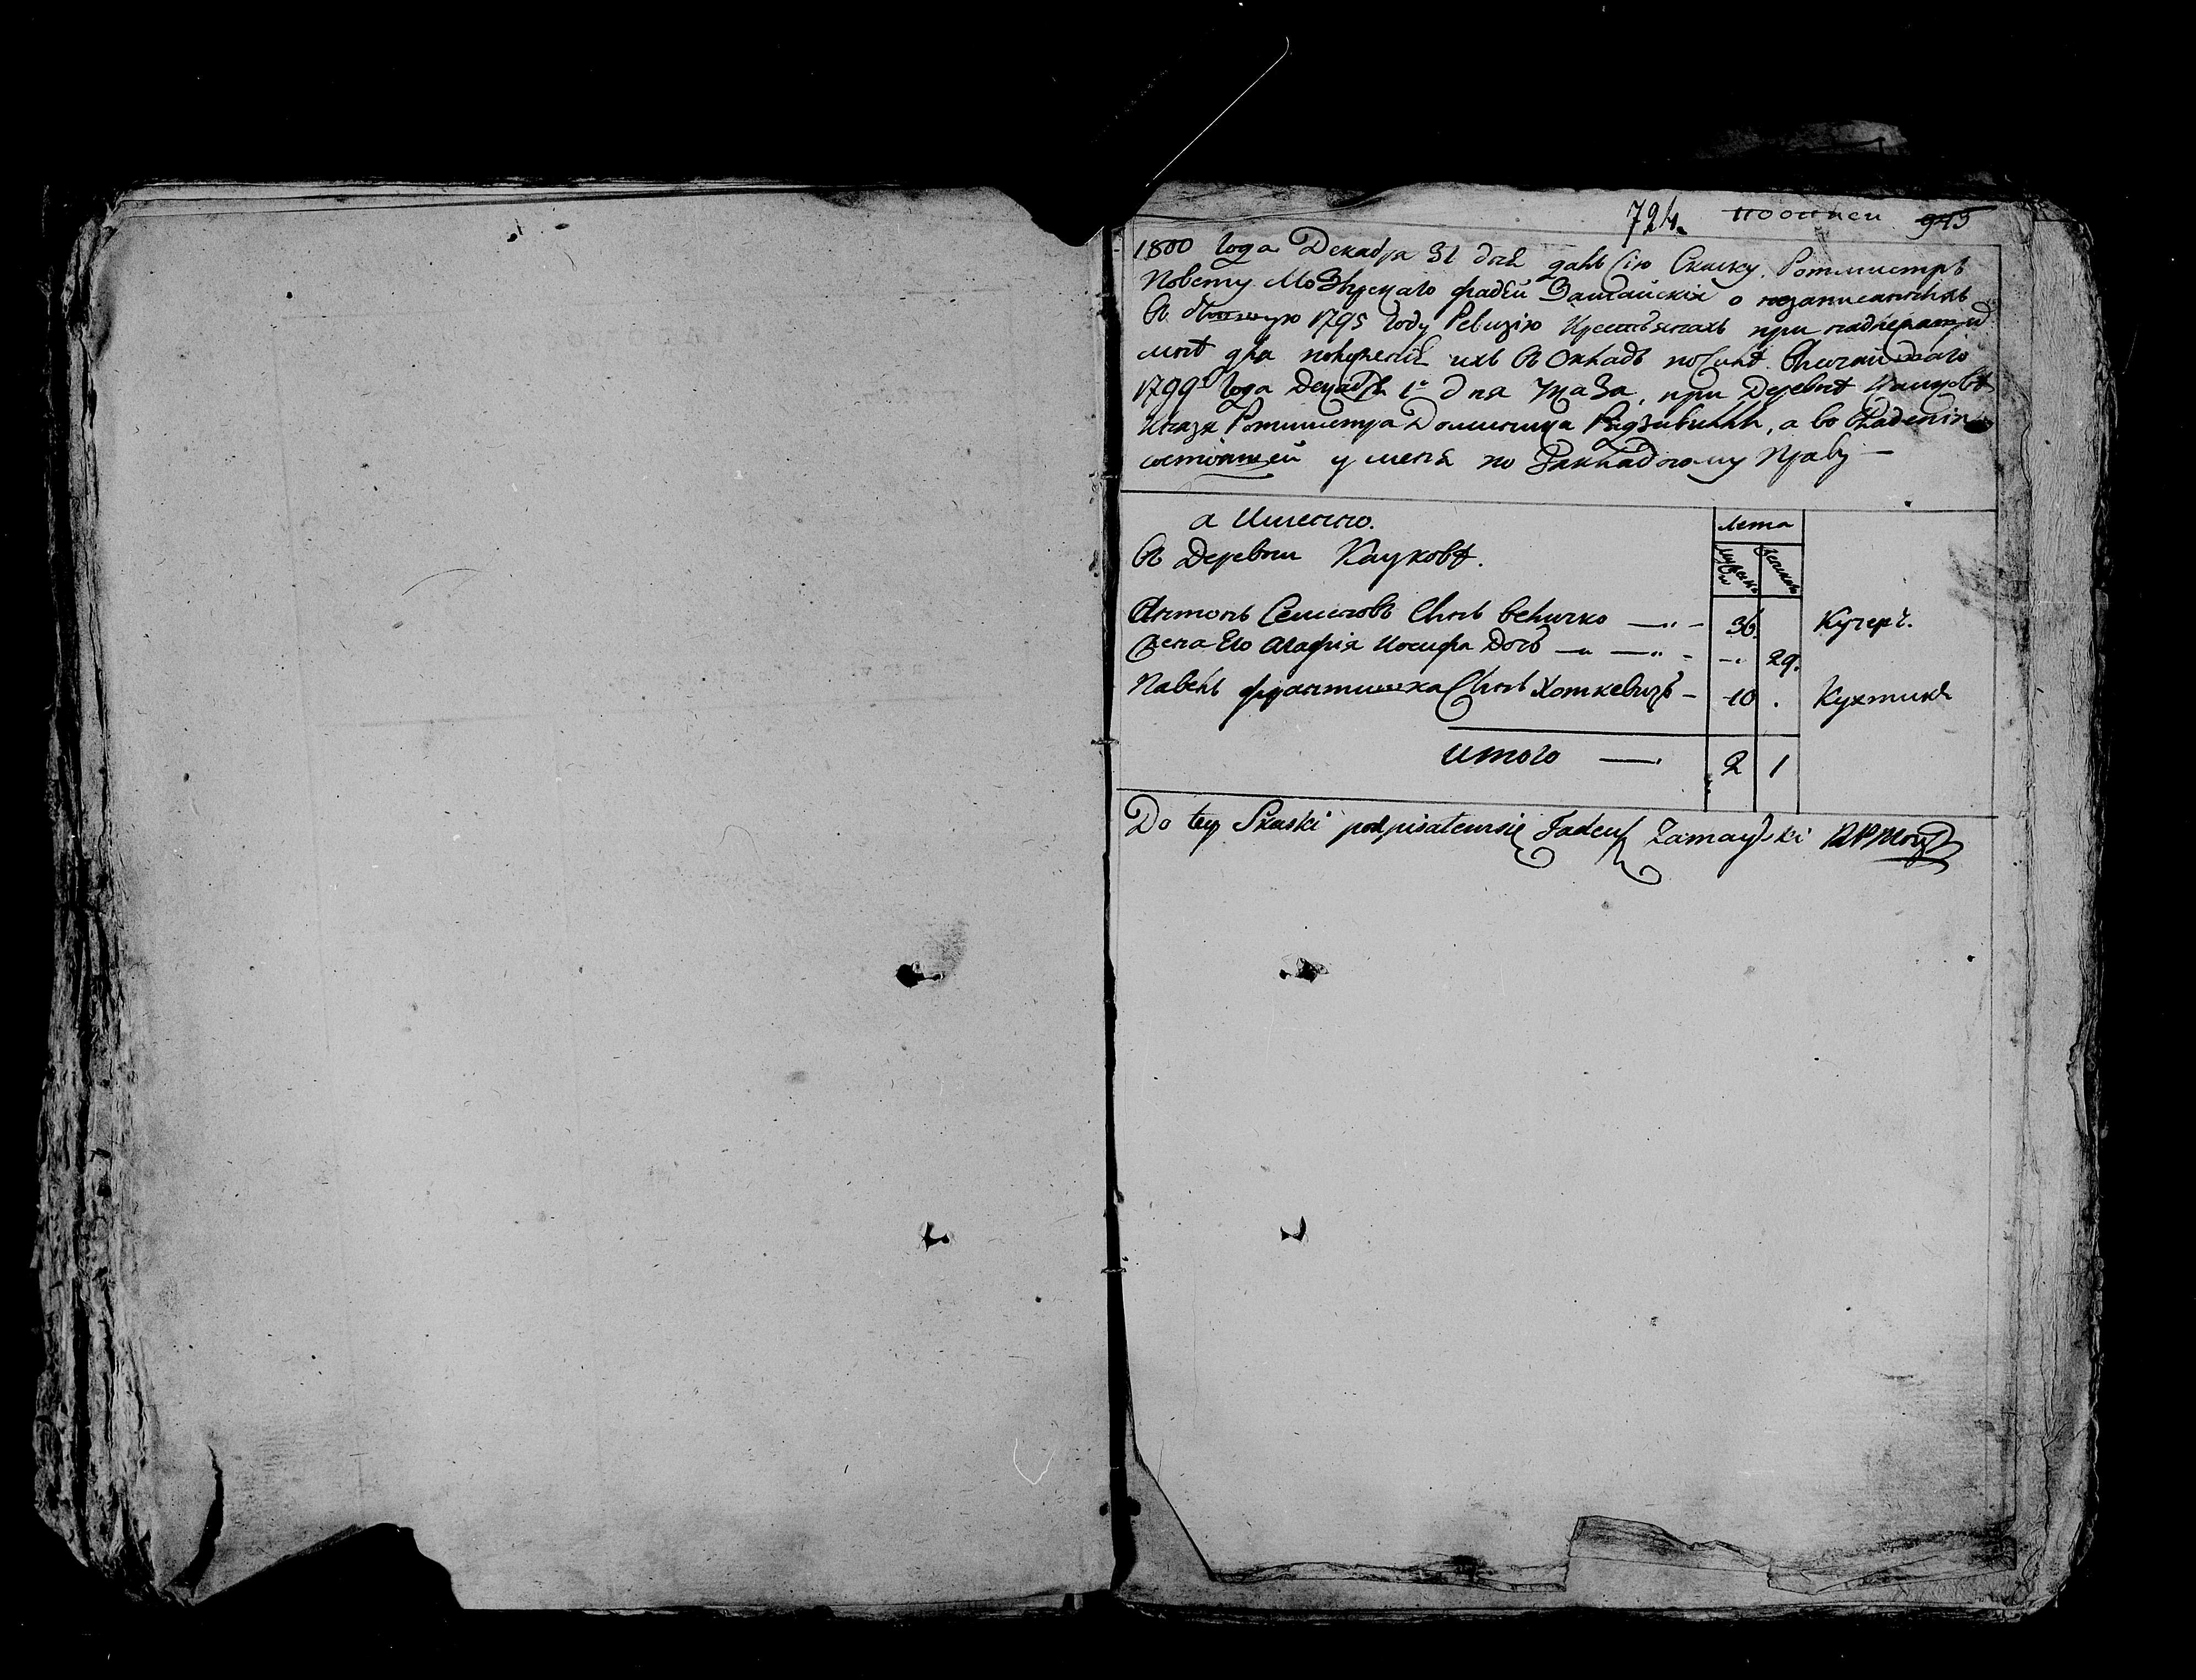 724. 945
1800 года Декабря 31 дня далъ сію Скаску Ротмистръ
Повету Мозырскаго Фадѣй Замайскій о незаписанныхъ
въ 1795 году Ревизію Крестьянахъ при
для положенія ихъ въ Окладъ по силѣ
1799 года Декабря 1 дня Указа, при Деревнѣ
Князя Ротмистра Доминика Радзивилла, а во владеніи
состоящей у меня по Закладному Праву —
а Именно.
въ Деревни Кауковѣ.
лета
мужеска женска
Антонъ Семіоновъ Сынъ Величко — 36. Кучеръ.
Жена Его Агафія Иосифа Дочь — 29.
Павелъ Франтишка Сынъ Хоткевичъ — 10 . Кухтикъ
Итого — 2 1
Do tey Skaski podpisałemsię Tadeusz Zamayski